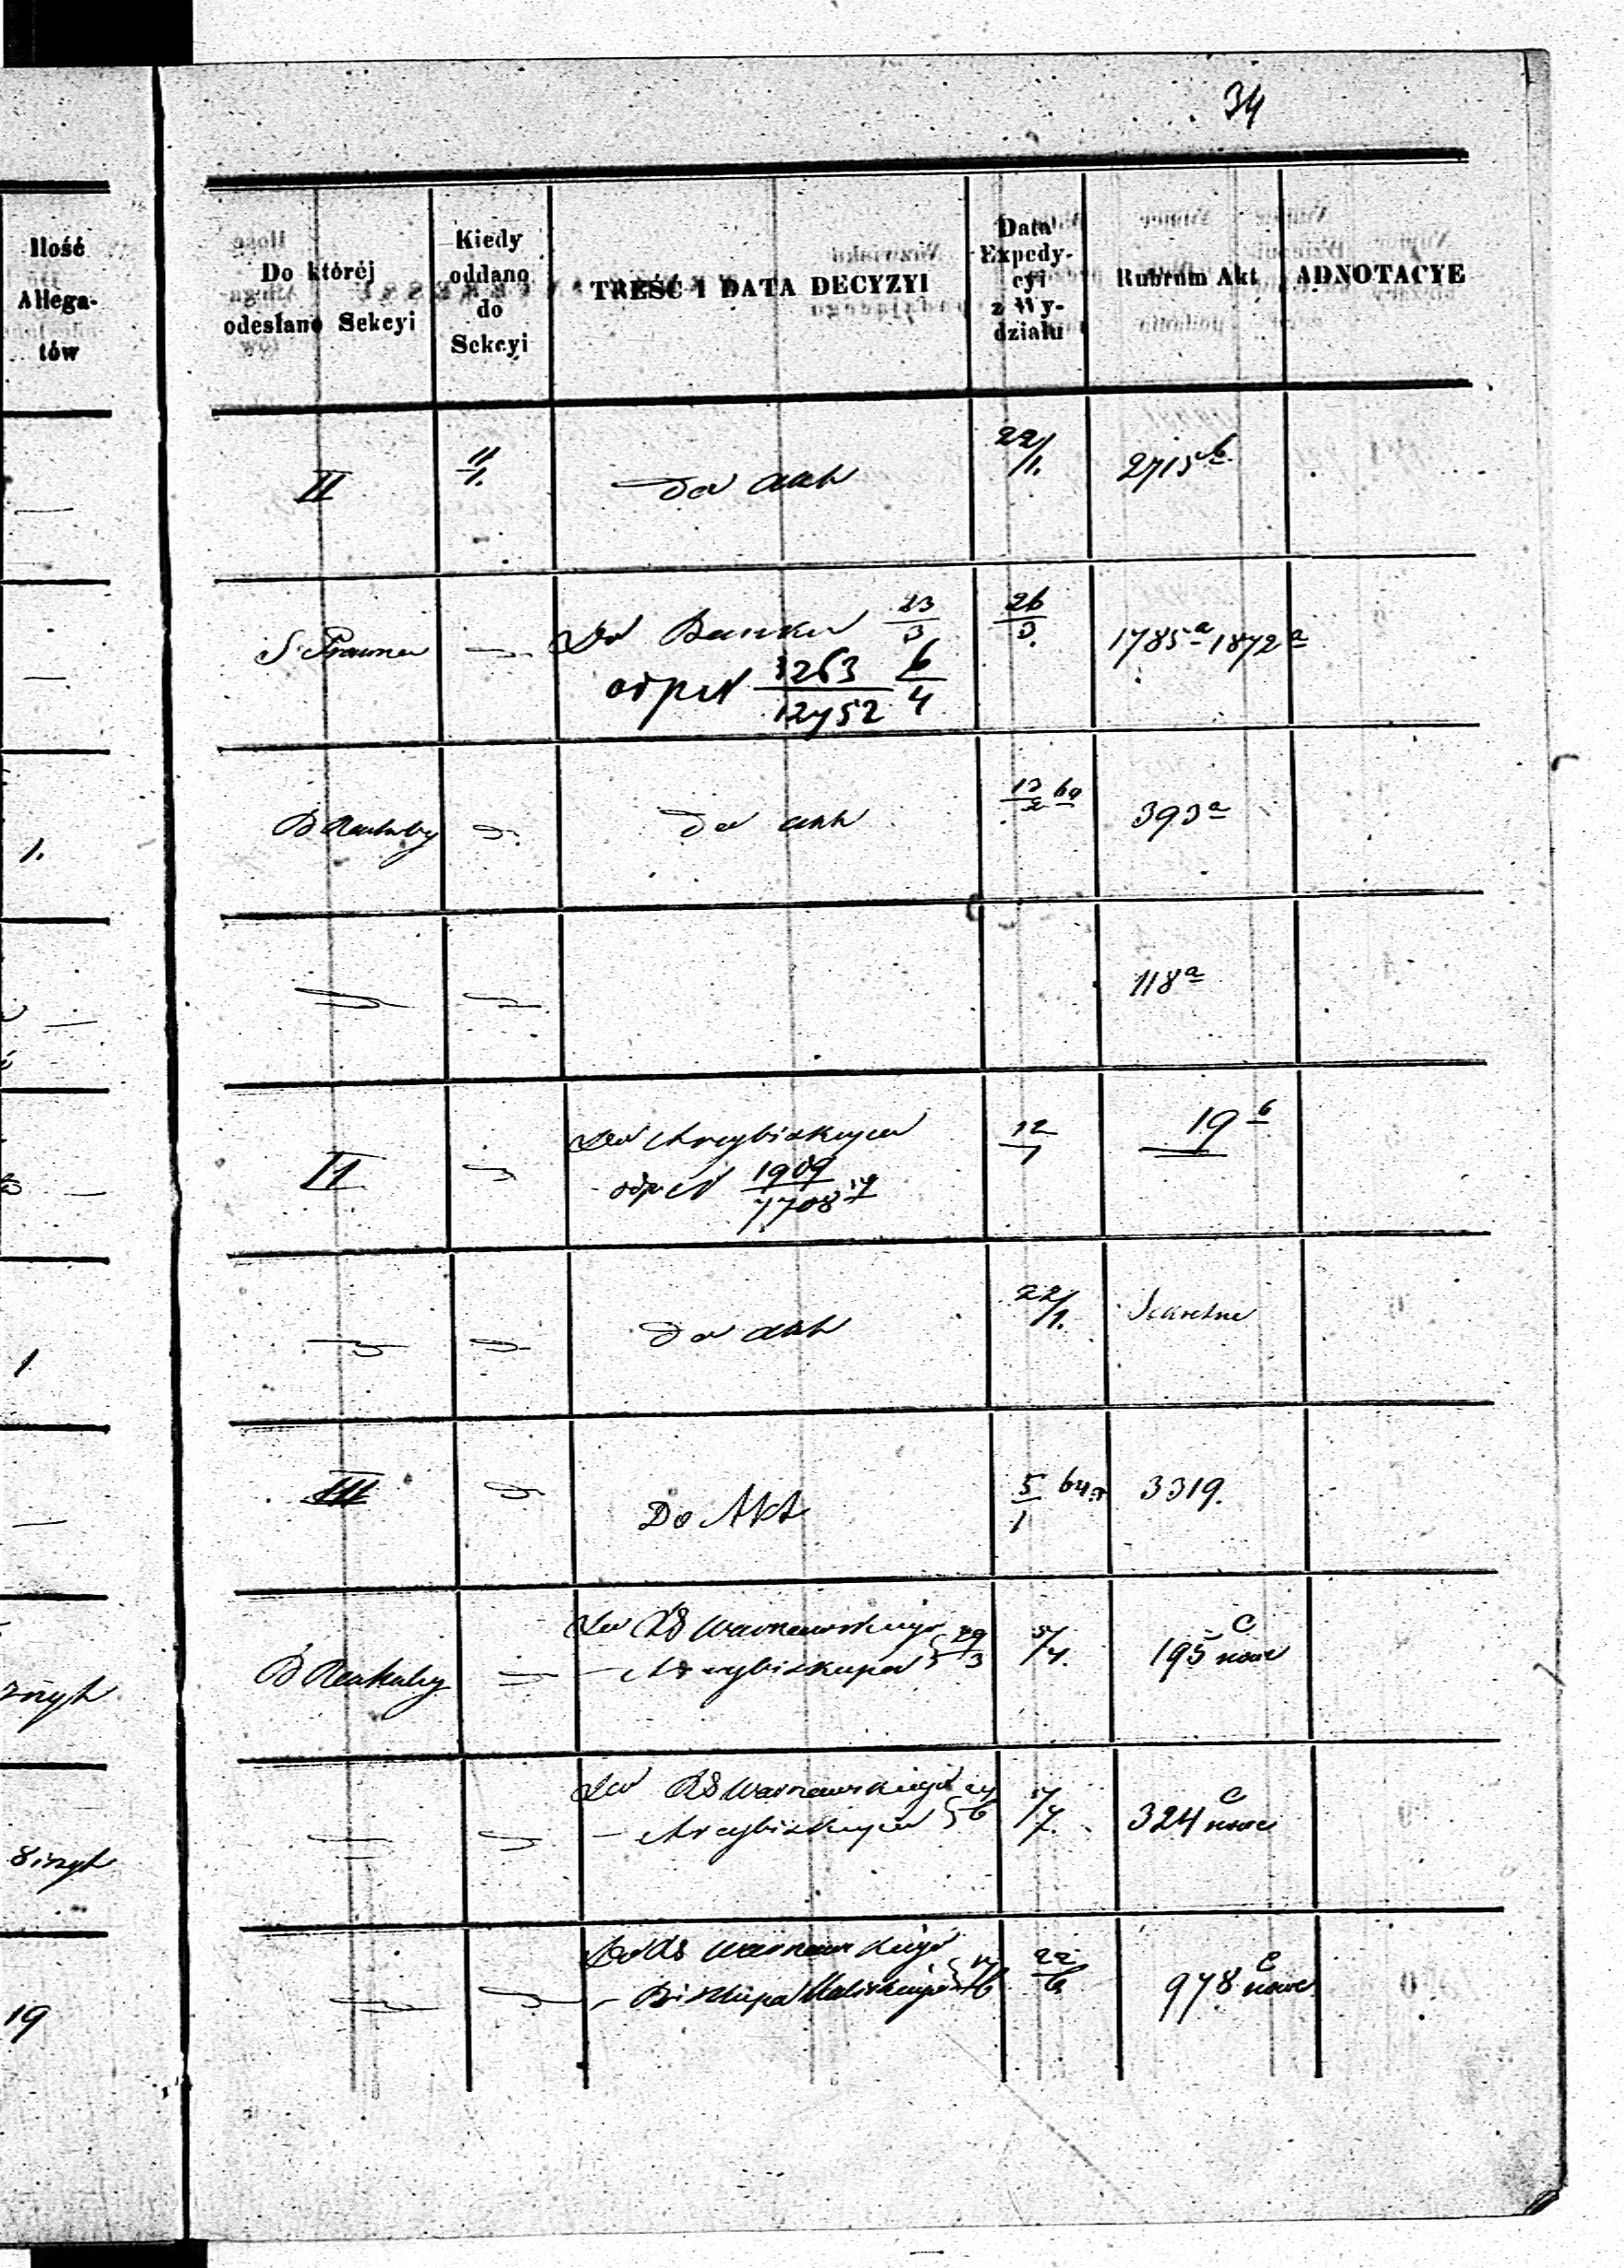 34
Ilość
Allega-
tów
Do któréj
odesłano Sekcyi
Kiedy
oddano
do
Sekcyi
TREŚĆ I DATA DECYZYI
Data
Expedy-
cyi
z Wy-
działu
Rubrum Akt
ADNOTACYE
—
II
11/1.
do akt
22/1.
2715 b
—
S. Prawna
Do Banku 23/3
odpis 3263/12752 6/4
26/3.
1785 a 1872 a
1.
B Rachuby
do akt
13/2
393 a
118 a
II
Do Arcybiskupa
1909/7708
12/1
19 b
1
do akt
22/1.
Sekretne
—
III
Do Akt
5/1
3319.
B Rachuby
Do RG Warszawskiego
— Arcybiskupa } 29/3
5/4.
195 C nowe
Do RG Warszawskiego
— Arcybiskupa
324 C nowe
19
Do RG Warszawskiego
— Biskupa
22/6
978 C nowe